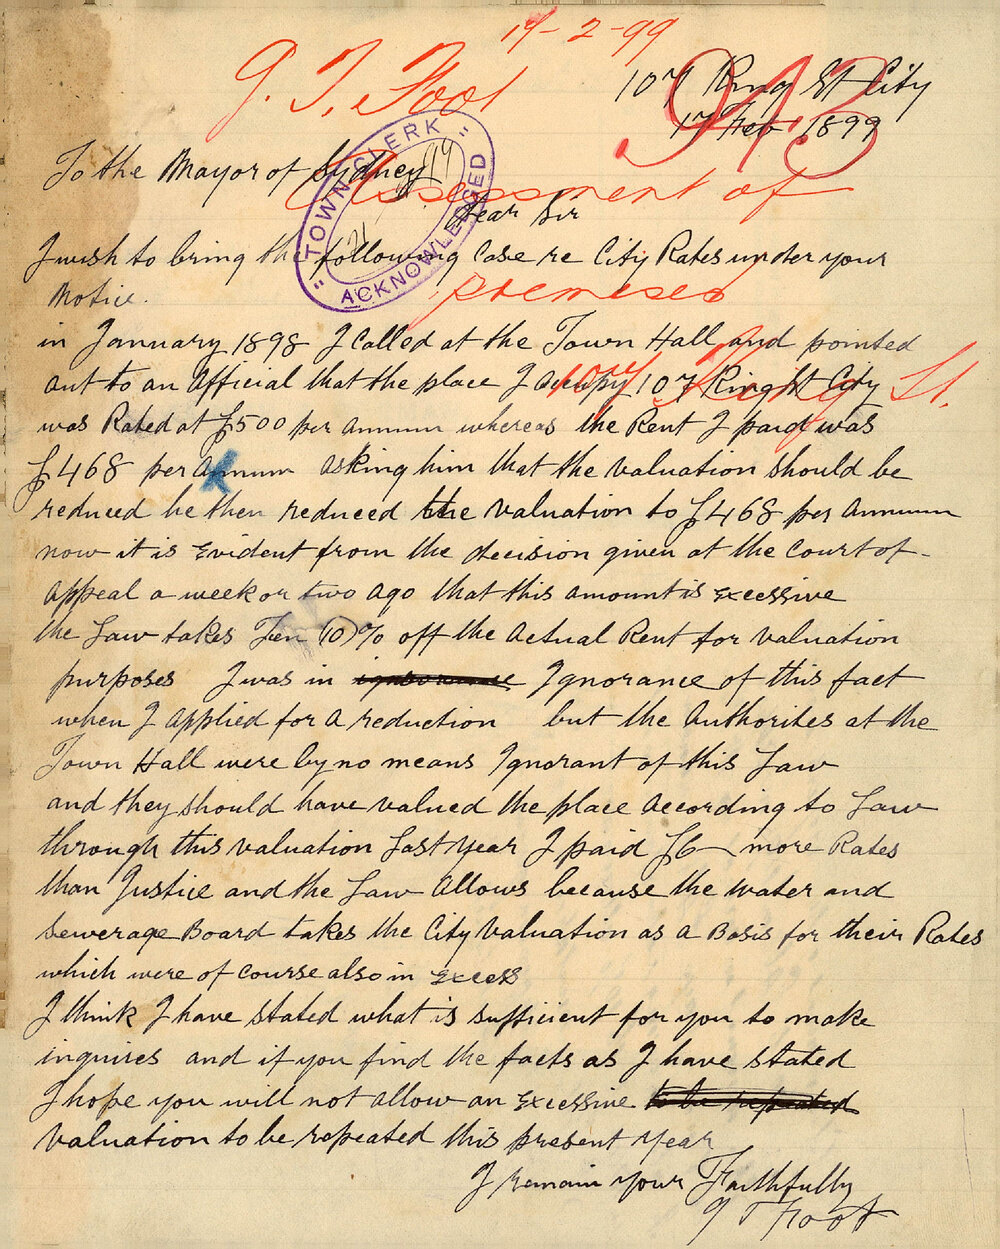 14-2-99
G. T. Foot
107 King St City
943
17 Feb 1899
To the Mayor of Sydney
Assessment of
Dear Sir
I wish to bring the following Case re City Rates under your
Notice.
premises
in January 1898 I Called at the Town Hall and pointed
out to an Official that the place I occupy 107 King St City
107 King St.
was Rated at £500 per Annum whereas the Rent I paid was
£468 per Annum asking him that the valuation should be
reduced he then reduced the valuation to £468 per Annum
now it is Evident from the decision given at the Court of
Appeal a week or two ago that this amount is Excessive
the Law takes Ten (10)% off the Actual Rent for valuation
purposes I was in ignorance Ignorance of this fact
when I applied for a reduction but the Authorites at the
Town Hall were by no means Ignorant of this Law
and they should have valued the place According to Law
through this valuation Last Year I paid £6 more Rates
than Justice and the Law Allows because the Water and
Sewerage Board takes the City Valuation as a Basis for their Rates
which were of course also in Excess
I think I have stated what is sufficient for you to make
inquires and if you find the facts as I have stated
I hope you will not allow an Excessive to be repeated
Valuation to be repeated this present Year
I remain your Faithfully
G T Foot
TOWN CLERK
ACKNOWLEDGED